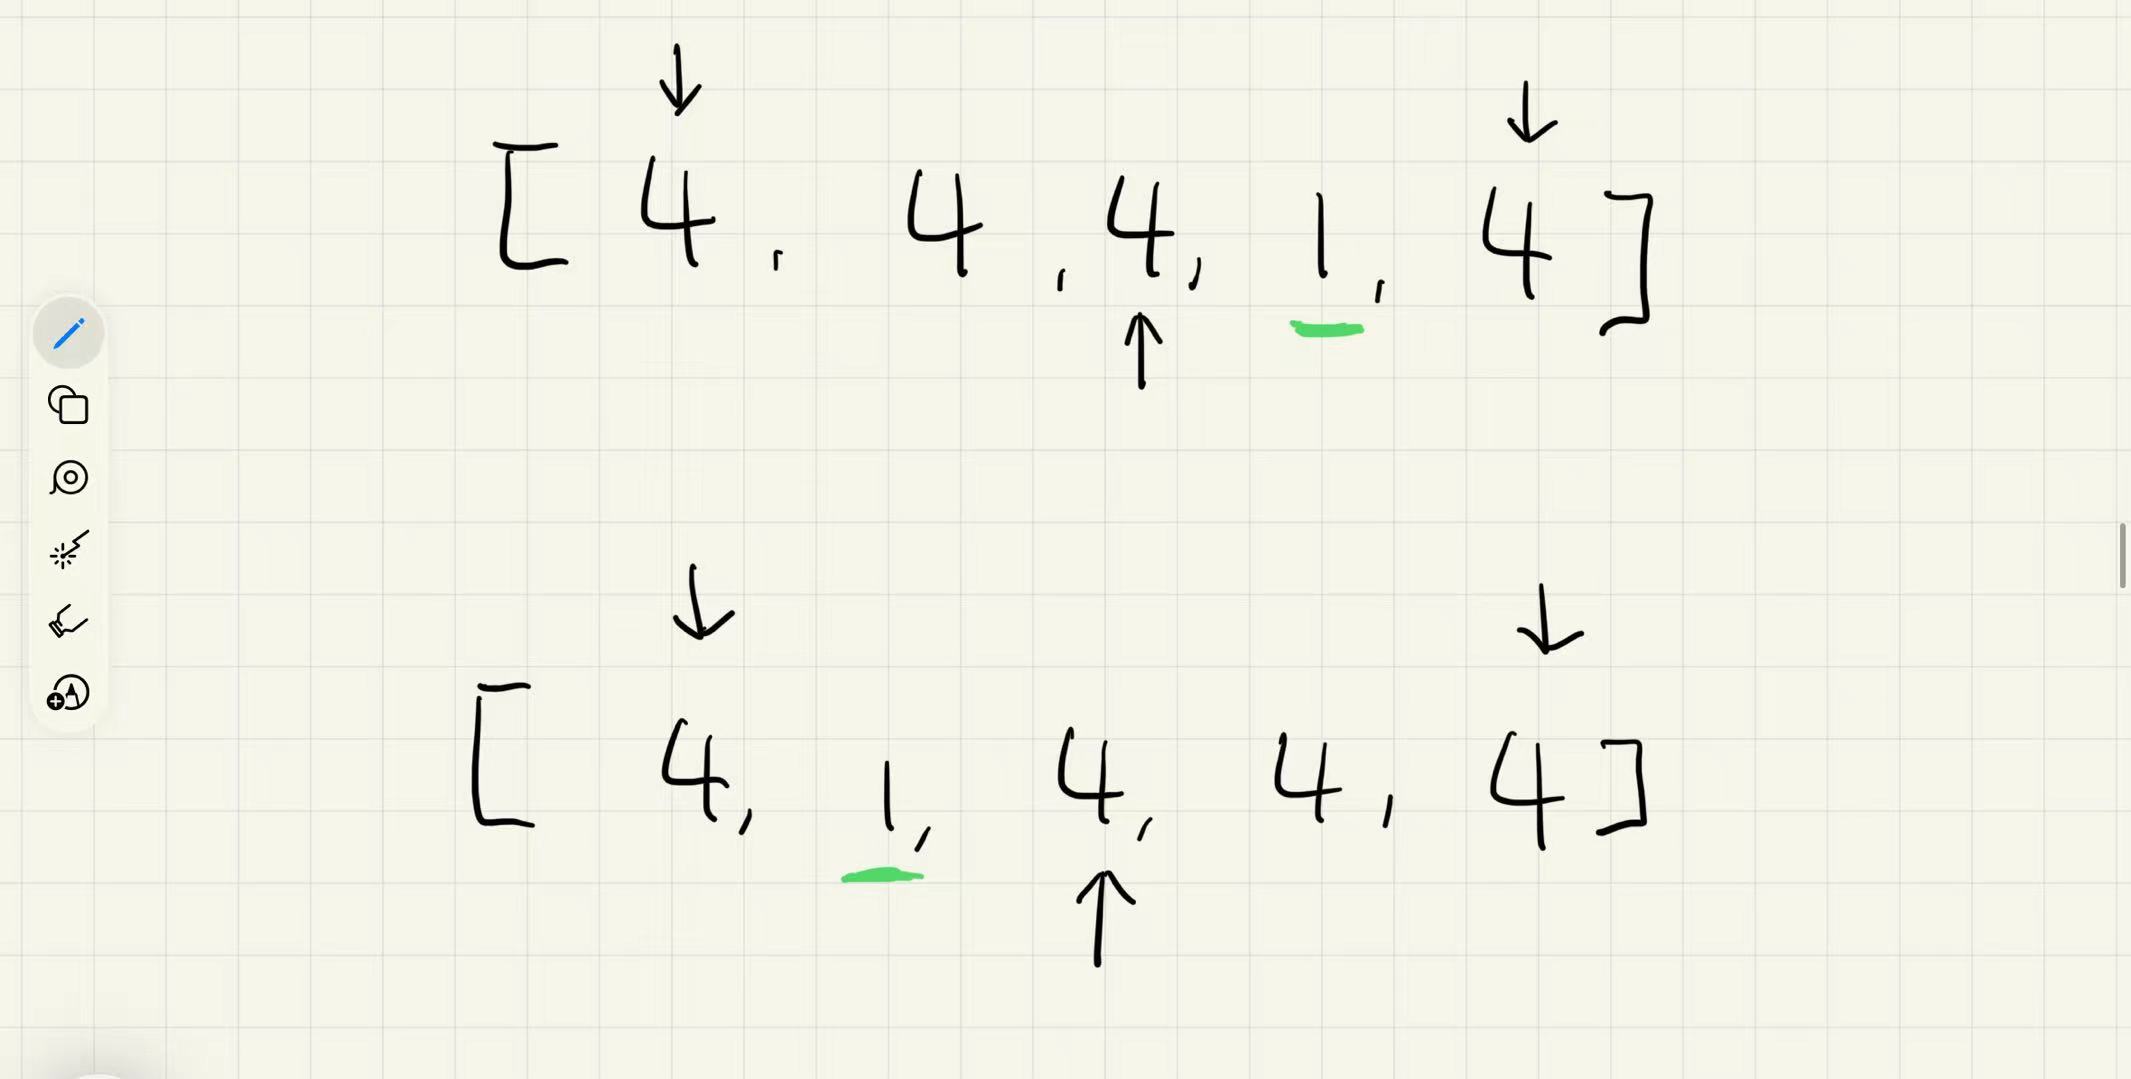 [ 4, 4, 4, 1, 4 ]
[ 4, 1, 4, 4, 4 ]